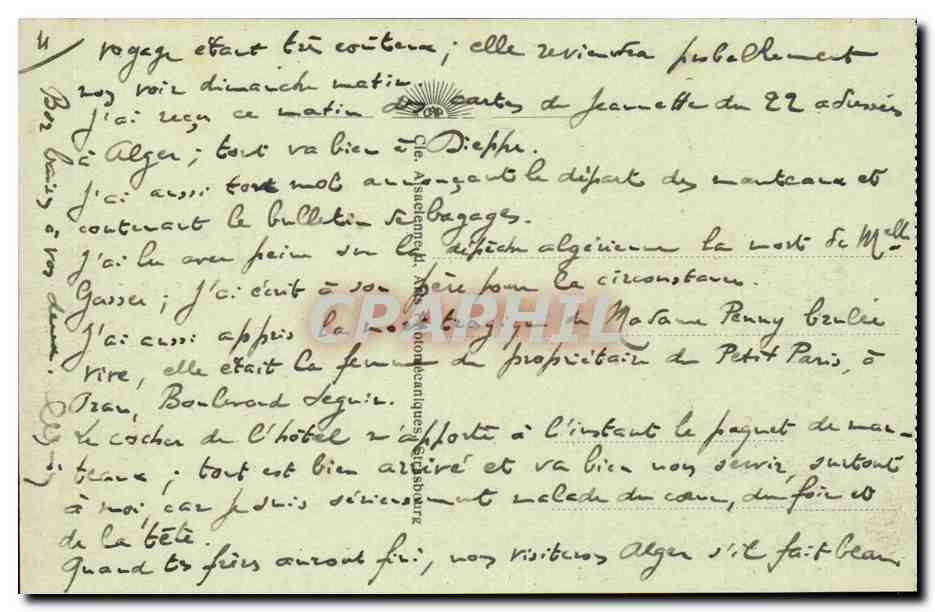 4)
voyage étant très coûteux ; elle reviendra probablement
nous voir dimanche matin.
J'ai reçu ce matin des cartes de Jeannette du 22 adressées
à Alger ; tout va bien à Dieppe.
J'ai aussi ton mot annonçant le départ des manteaux et
contenant le bulletin de bagages.
J'ai lu avec peine sur la dépêche algérienne la mort de Melle
Gasser ; j'ai écrit à son père pour la circonstance.
J'ai aussi appris la mort tragique de Madame Penny brulée
vive, elle était la femme du propriétaire du Petit Paris, à
Oran, Boulevard Seguin.
Le cocher de l'hôtel m'apporte à l'instant le paquet de man-
teaux ; tout est bien arrivé et va bien nous servir, surtout
à moi, car je suis sérieusement malade du cœur, du foie et
de la tête.
Quand tes frères auront fini, nous visiterons Alger s'il fait beau.
Bons baisers à vos deux.
Cie. Alsacienne d. Arts Photomécaniques, Strasbourg
CAP
CPAPHIL